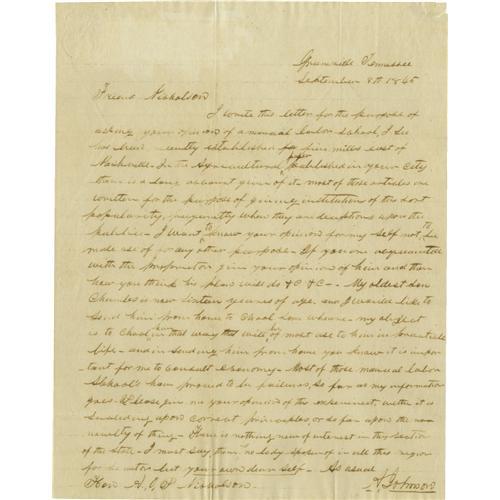 Greeneville Tennessee
September 8th 1845
Friend Nicholson
I write this letter for the purpose of
asking your opinion of a manual labor School, I See
has been recently established five miles east of
Nashville - In the Agricultural paper published in your City
there is a long account given of it - most of those articles are
written for the purpose of giving institutions of the sort
popularity, frequently when they are deceptions upon the
public - I want to know your opinion for my Self not to be
made use of for any other purpose - If you are acquainted
with the proprietor give your opinion of him and then
how you think his plan will do &C &C - My oldest Son
Charles is now Sixteen years of age and I would like to
Send him from home to School Some where - my object
is to School him in that way that will be of most use to him in practical
life - and in Sending him from home you know it is impor-
tant for me to consult economy - Most of those manual labor
School's have proved to be failures, So far as my information
goes - Please give me your opinion of this experiment, wether it is
upon correct principles, or So far upon the
of thing - There is nothing new of interest in this Section
of the State - I must Say there is no body Spoken of in all this region
for Senator but your own dear Self - As usual
Hon A. O. P Nicholson - A Johnson